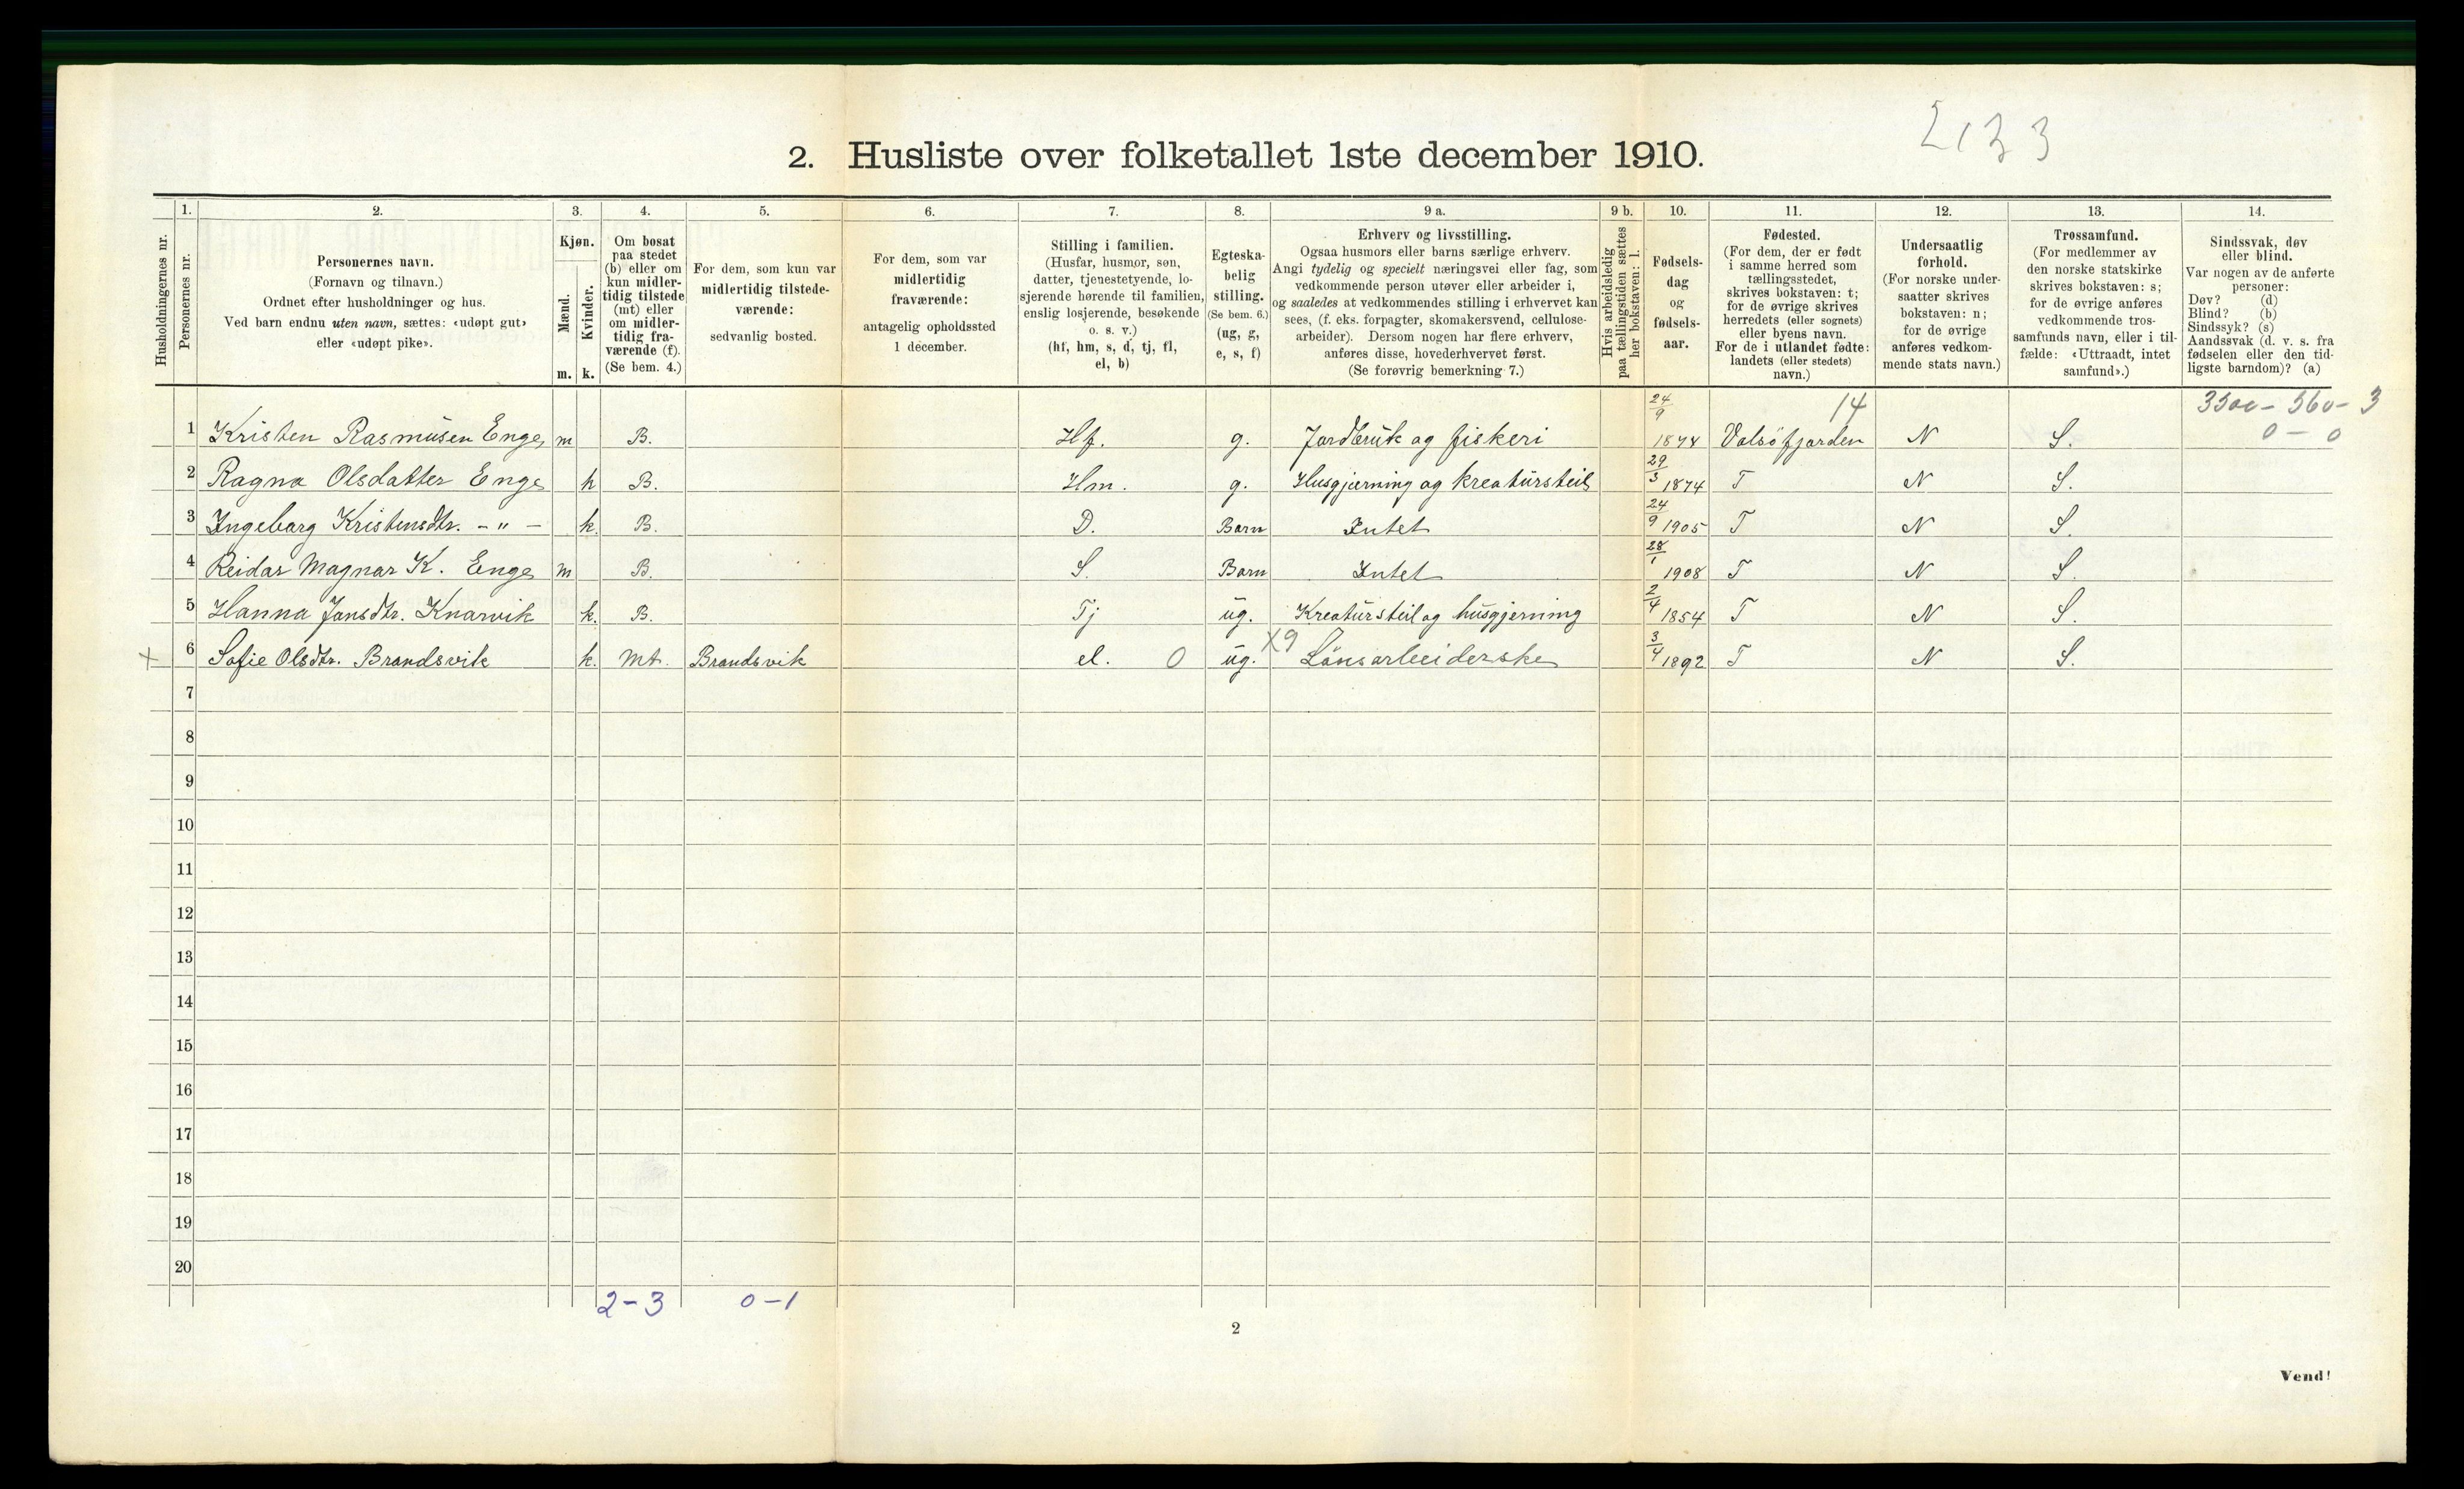 2133
2. Husliste over folketallet 1ste december 1910.
Husholdningernes nr.
1. Personernes nr.
2. Personernes navn.
(Fornavn og tilnavn.)
Ordnet efter husholdninger og hus.
Ved barn endnu uten navn, sættes: «udøpt gut»
eller «udøpt pike».
3. Kjøn.
Mænd. m.
Kvinder. k.
4. Om bosat
paa stedet
(b) eller om
kun midler-
tidig tilstede
(mt) eller
om midler-
tidig fra-
værende (f).
(Se bem. 4.)
5. For dem, som kun var
midlertidig tilstede-
værende:
sedvanlig bosted.
6. For dem, som var
midlertidig
fraværende:
antagelig opholdssted
1 december.
7. Stilling i familien.
(Husfar, husmor, søn,
datter, tjenestetyende, lo-
sjerende hørende til familien,
enslig losjerende, besøkende
o. s. v.)
(hf, hm, s, d, tj, fl,
el, b)
8. Egteska-
belig
stilling.
(Se bem. 6.)
(ug, g,
e, s, f)
9 a. Erhverv og livsstilling.
Ogsaa husmors eller barns særlige erhverv.
Angi tydelig og specielt næringsvei eller fag, som
vedkommende person utøver eller arbeider i,
og saaledes at vedkommendes stilling i erhvervet kan
sees, (f. eks. forpagter, skomakersvend, cellulose-
arbeider). Dersom nogen har flere erhverv,
anføres disse, hovederhvervet først.
(Se forøvrig bemerkning 7.)
9 b. Hvis arbeidsledig
paa tællingstiden sættes
her bokstaven: l.
10. Fødsels-
dag
og
fødsels-
aar.
11. Fødested.
(For dem, der er født
i samme herred som
tællingsstedet,
skrives bokstaven: t;
for de øvrige skrives
herredets (eller sognets)
eller byens navn.
For de i utlandet fødte:
landets (eller stedets)
navn.)
12. Undersaatlig
forhold.
(For norske under-
saatter skrives
bokstaven: n;
for de øvrige
anføres vedkom-
mende stats navn.)
13. Trossamfund.
(For medlemmer av
den norske statskirke
skrives bokstaven: s;
for de øvrige anføres
vedkommende tros-
samfunds navn, eller i til-
fælde: «Uttraadt, intet
samfund».)
14. Sindssvak, døv
eller blind.
Var nogen av de anførte
personer:
Døv? (d)
Blind? (b)
Sindssyk? (s)
Aandssvak (d. v. s. fra
fødselen eller den tid-
ligste barndom)? (a)
14 3500 - 560 - 3
0 - 0
1 Kristen Rasmusen Enge m B. Hf. g. Jordbruk og fiskeri 24/9 1874 Valsöfjorden N S.
2 Ragna Olsdatter Enge k B. Hm. g. Husgjerning og kreaturstell 29/3 1874 T N S.
3 Ingeborg Kristensdtr. - " - k. B. D. Barn Intet 24/9 1905 T N S.
4 Reidar Magnar K. Enge m B. S. Barn Intet 28/1 1908 T N S.
5 Hanna Jonsdtr. Knarvik k. B. Tj ug. Kreaturstell og husgjerning 2/4 1854 T N S.
X 6 Sofie Olsdtr. Brandsvik k. Mt. Brandsvik el. 0 ug. X9 Lönsarbeiderske 3/4 1892 T N S.
7
8
9
10
11
12
13
14
15
16
17
18
19
20
2-3 0-1
2
Vend!